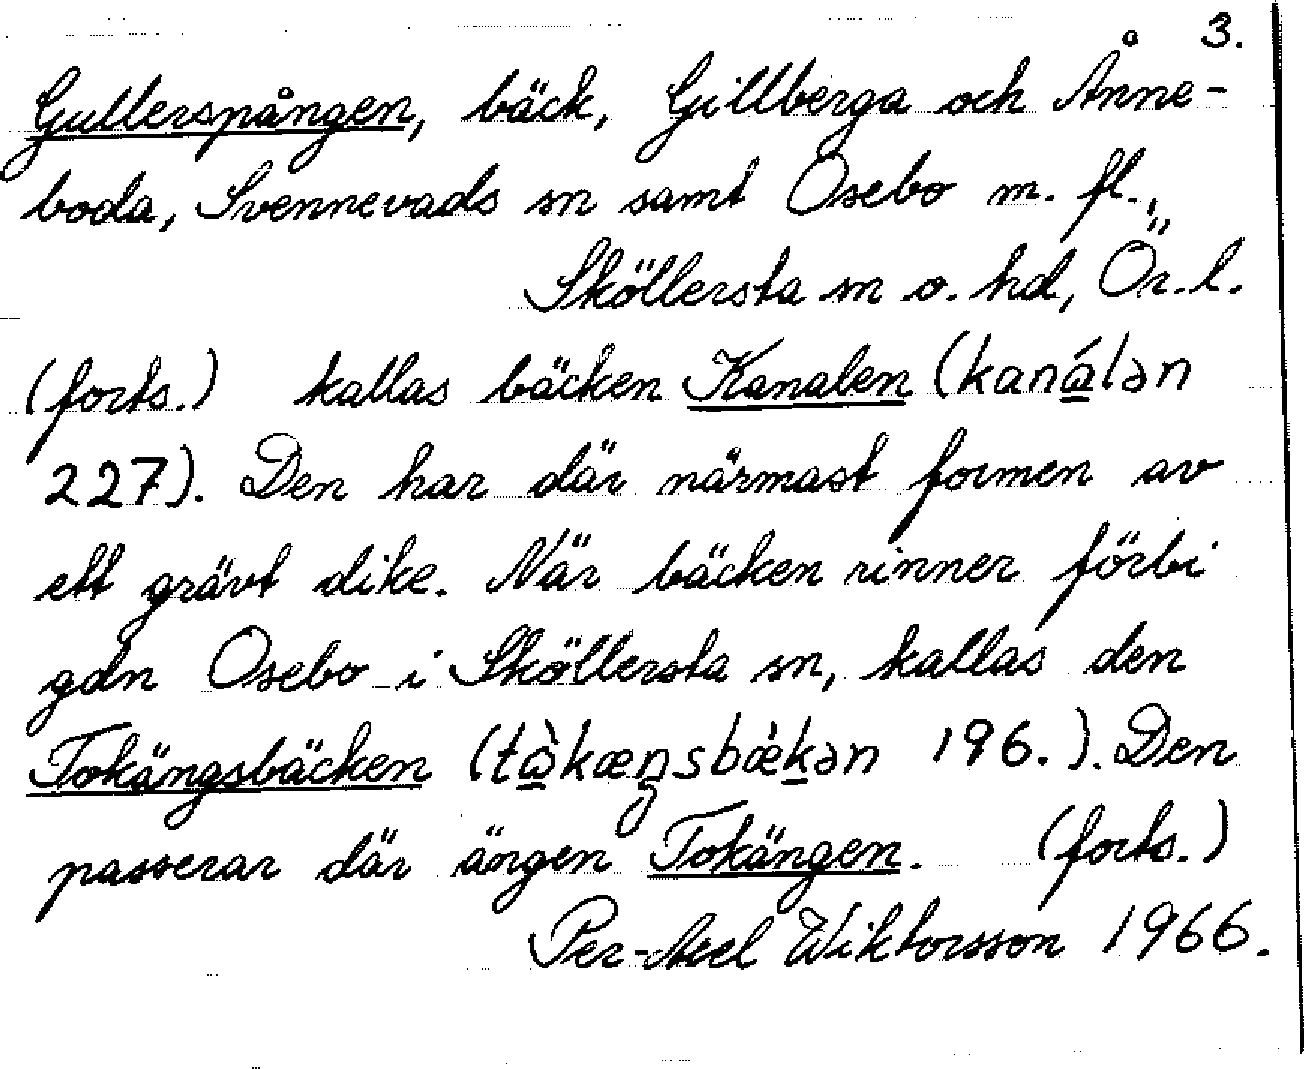 3.
Gullerspången, bäck, Gillberga och Ånne-
boda, Svennevads sn samt Osebo m. fl.,
Sköllersta sn o. hd, Ör. l.
(forts.) kallas bäcken Kanalen (kanálən
227). Den har där närmast formen av
ett grävt dike. När bäcken rinner förbi
gdn Osebo i Sköllersta sn, kallas den
Tokängsbäcken (tò̀kæŋsbæ̀kən 196.). Den
passerar där ängen Tokängen. (forts.)
Per-Axel Wiktorsson 1966.